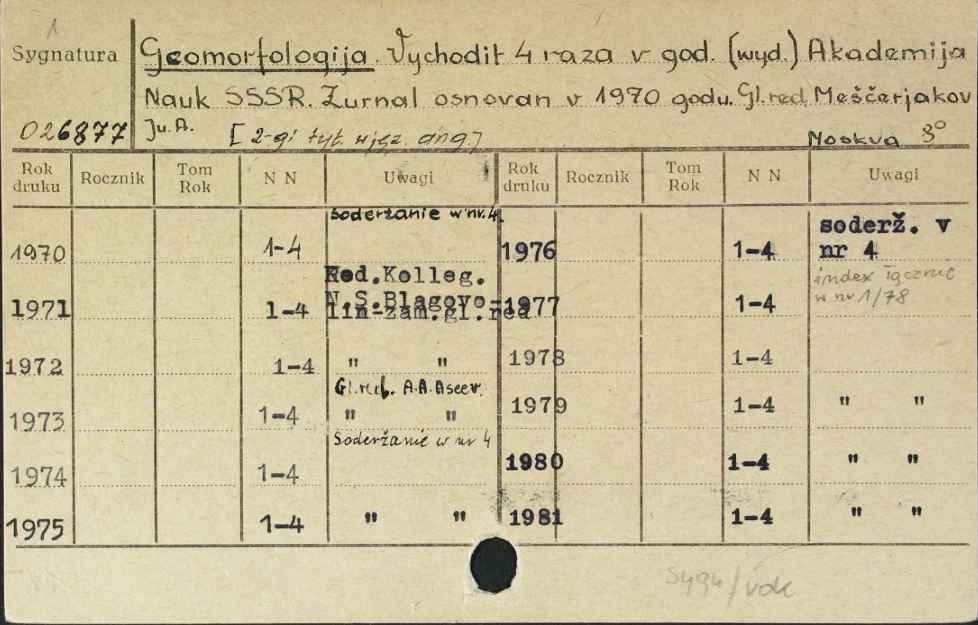 1
Sygnatura
Geomorfologija. Vychodit 4 raza v god. (wyd.) Akademija
Nauk SSSR. Žurnal osnovan v 1970 godu. Gl.red. Meščerjakov
026877 Ju.A. [2-gi tyt. w jęz. ang.] Moskva 8°
Rok druku Rocznik Tom Rok N N Uwagi Rok druku Rocznik Tom Rok N N Uwagi
1970 1-4 Soderžanie w nr. 4. 1976 1-4 soderž. v nr 4
1971 1-4 Red.Kolleg. N.S.Blagovo- lin-zam.gl.red 1977 1-4 index łącznie w nr 1/78
1972 1-4 " " 1978 1-4
1973 1-4 Gl.red. A.A.Aseev. " " 1979 1-4 " "
1974 1-4 Soderžanie w nr 4 1980 1-4 " "
1975 1-4 " " 1981 1-4 " "